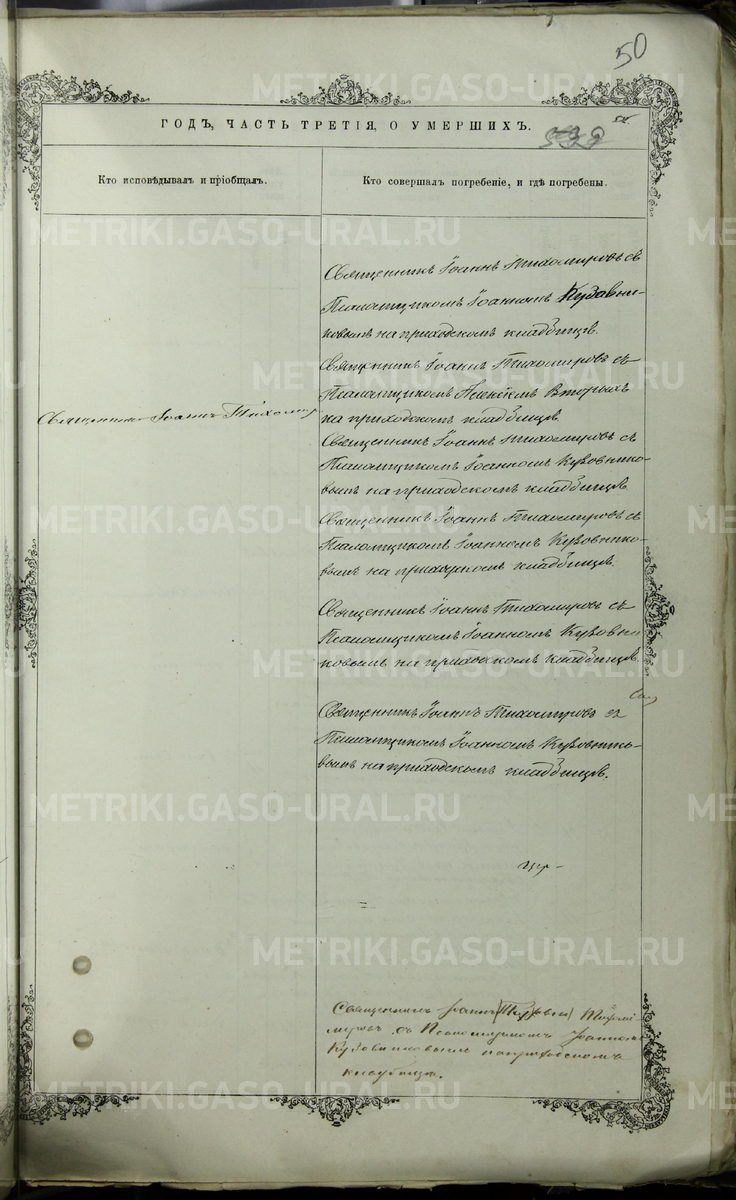 50
METRIKI.GASO-URAL.RU
ГОДЪ, ЧАСТЬ ТРЕТІЯ, О УМЕРШИХЪ.
Кто исповѣдывалъ и пріобщалъ.
Кто совершалъ погребеніе, и гдѣ погребены.
Священникъ Іоаннъ Тихомировъ съ
Псаломщикомъ Іоанномъ Кузовни-
ковымъ на приходскомъ кладбищѣ.
Священникъ Іоаннъ Тихомировъ съ
Псаломщикомъ Алексѣемъ Вторыхъ
на приходскомъ кладбищѣ.
Священникъ Іоаннъ Тихомир
Священникъ Іоаннъ Тихомировъ съ
Псаломщикомъ Іоанномъ Кузовнико-
вымъ на приходскомъ кладбищѣ.
Священникъ Іоаннъ Тихомировъ съ
Псаломщикомъ Іоанномъ Кузовнико-
вымъ на приходскомъ кладбищѣ.
Священникъ Іоаннъ Тихомировъ съ
Псаломщикомъ Іоанномъ Кузовни
ковымъ на приходскомъ кладбищѣ.
Священникъ Іоаннъ Тихомировъ съ
Псаломщикомъ Іоанномъ Кузовнико-
вымъ на приходскомъ кладбищѣ.
Священникъ Іоаннъ
съ Псаломщикомъ Іоанномъ
Кузовниковымъ на приходскомъ
кладбищѣ.